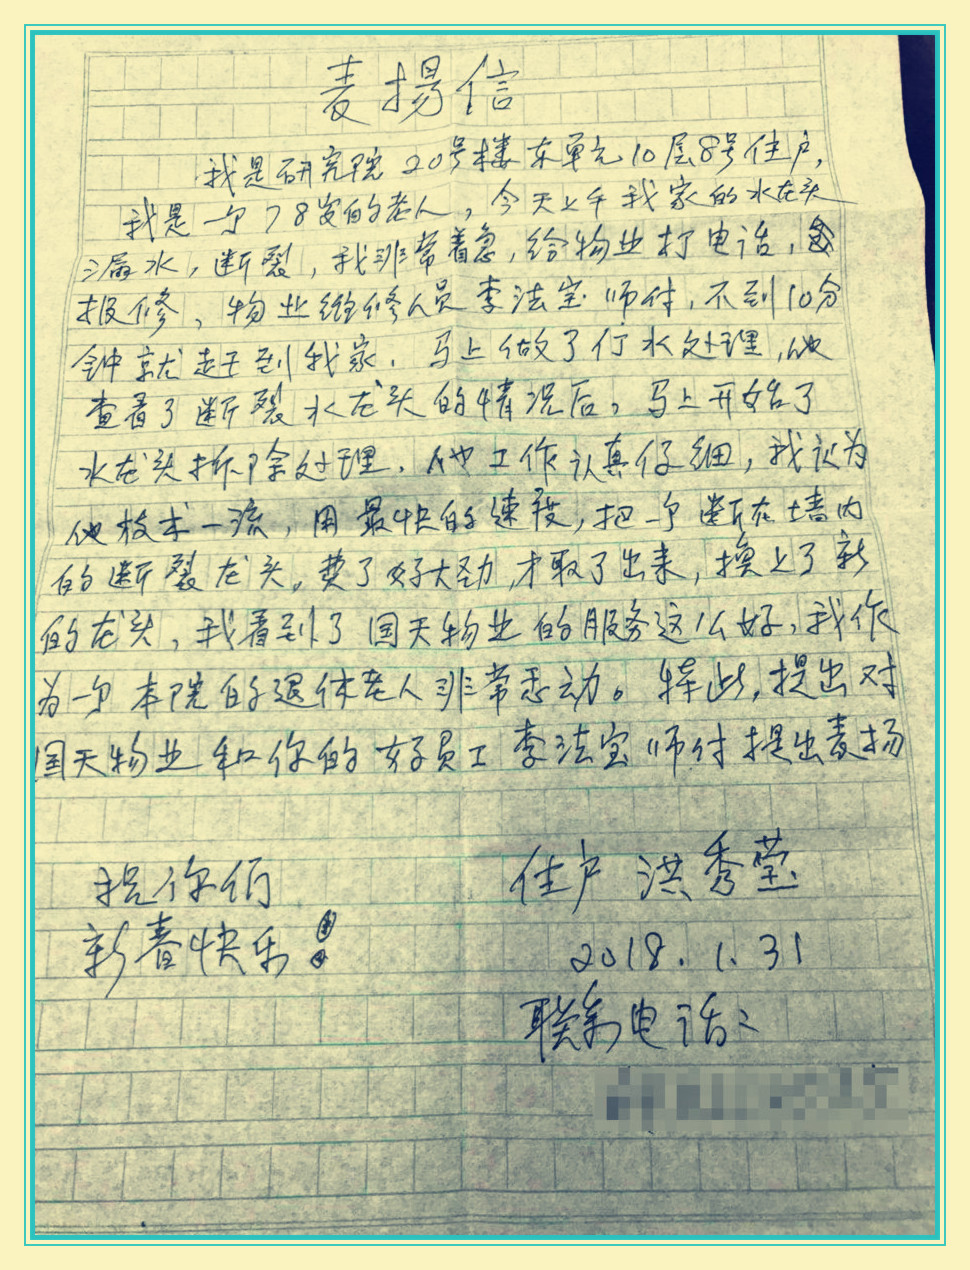 表揚信
我是研究院20号楼东单元10层8号住户,
我是一个78岁的老人,今天上午我家的水龙头
漏水,断裂,我非常着急,给物业打电话,
报修、物业维修人员李法宝师付,不到10分
钟就赶到我家.马上做了行水处理,他
查看了断裂水龙头的情况后,马上开始了
水龙头拆除处理.他工作认真仔细,我认为
他技术一流,用最快的速度,把一个断在墙内
的断裂龙头。费了好大劲,才取了出来,换上了新
的龙头,我看到了国天物业的服务这么好,我作
为一个本院的退休老人非常感动。特此,提出对
国天物业和你的好员工李法宝师付提出表扬
祝你们
新春快乐!
住户 洪秀莹
2018.1.31
联系电话: